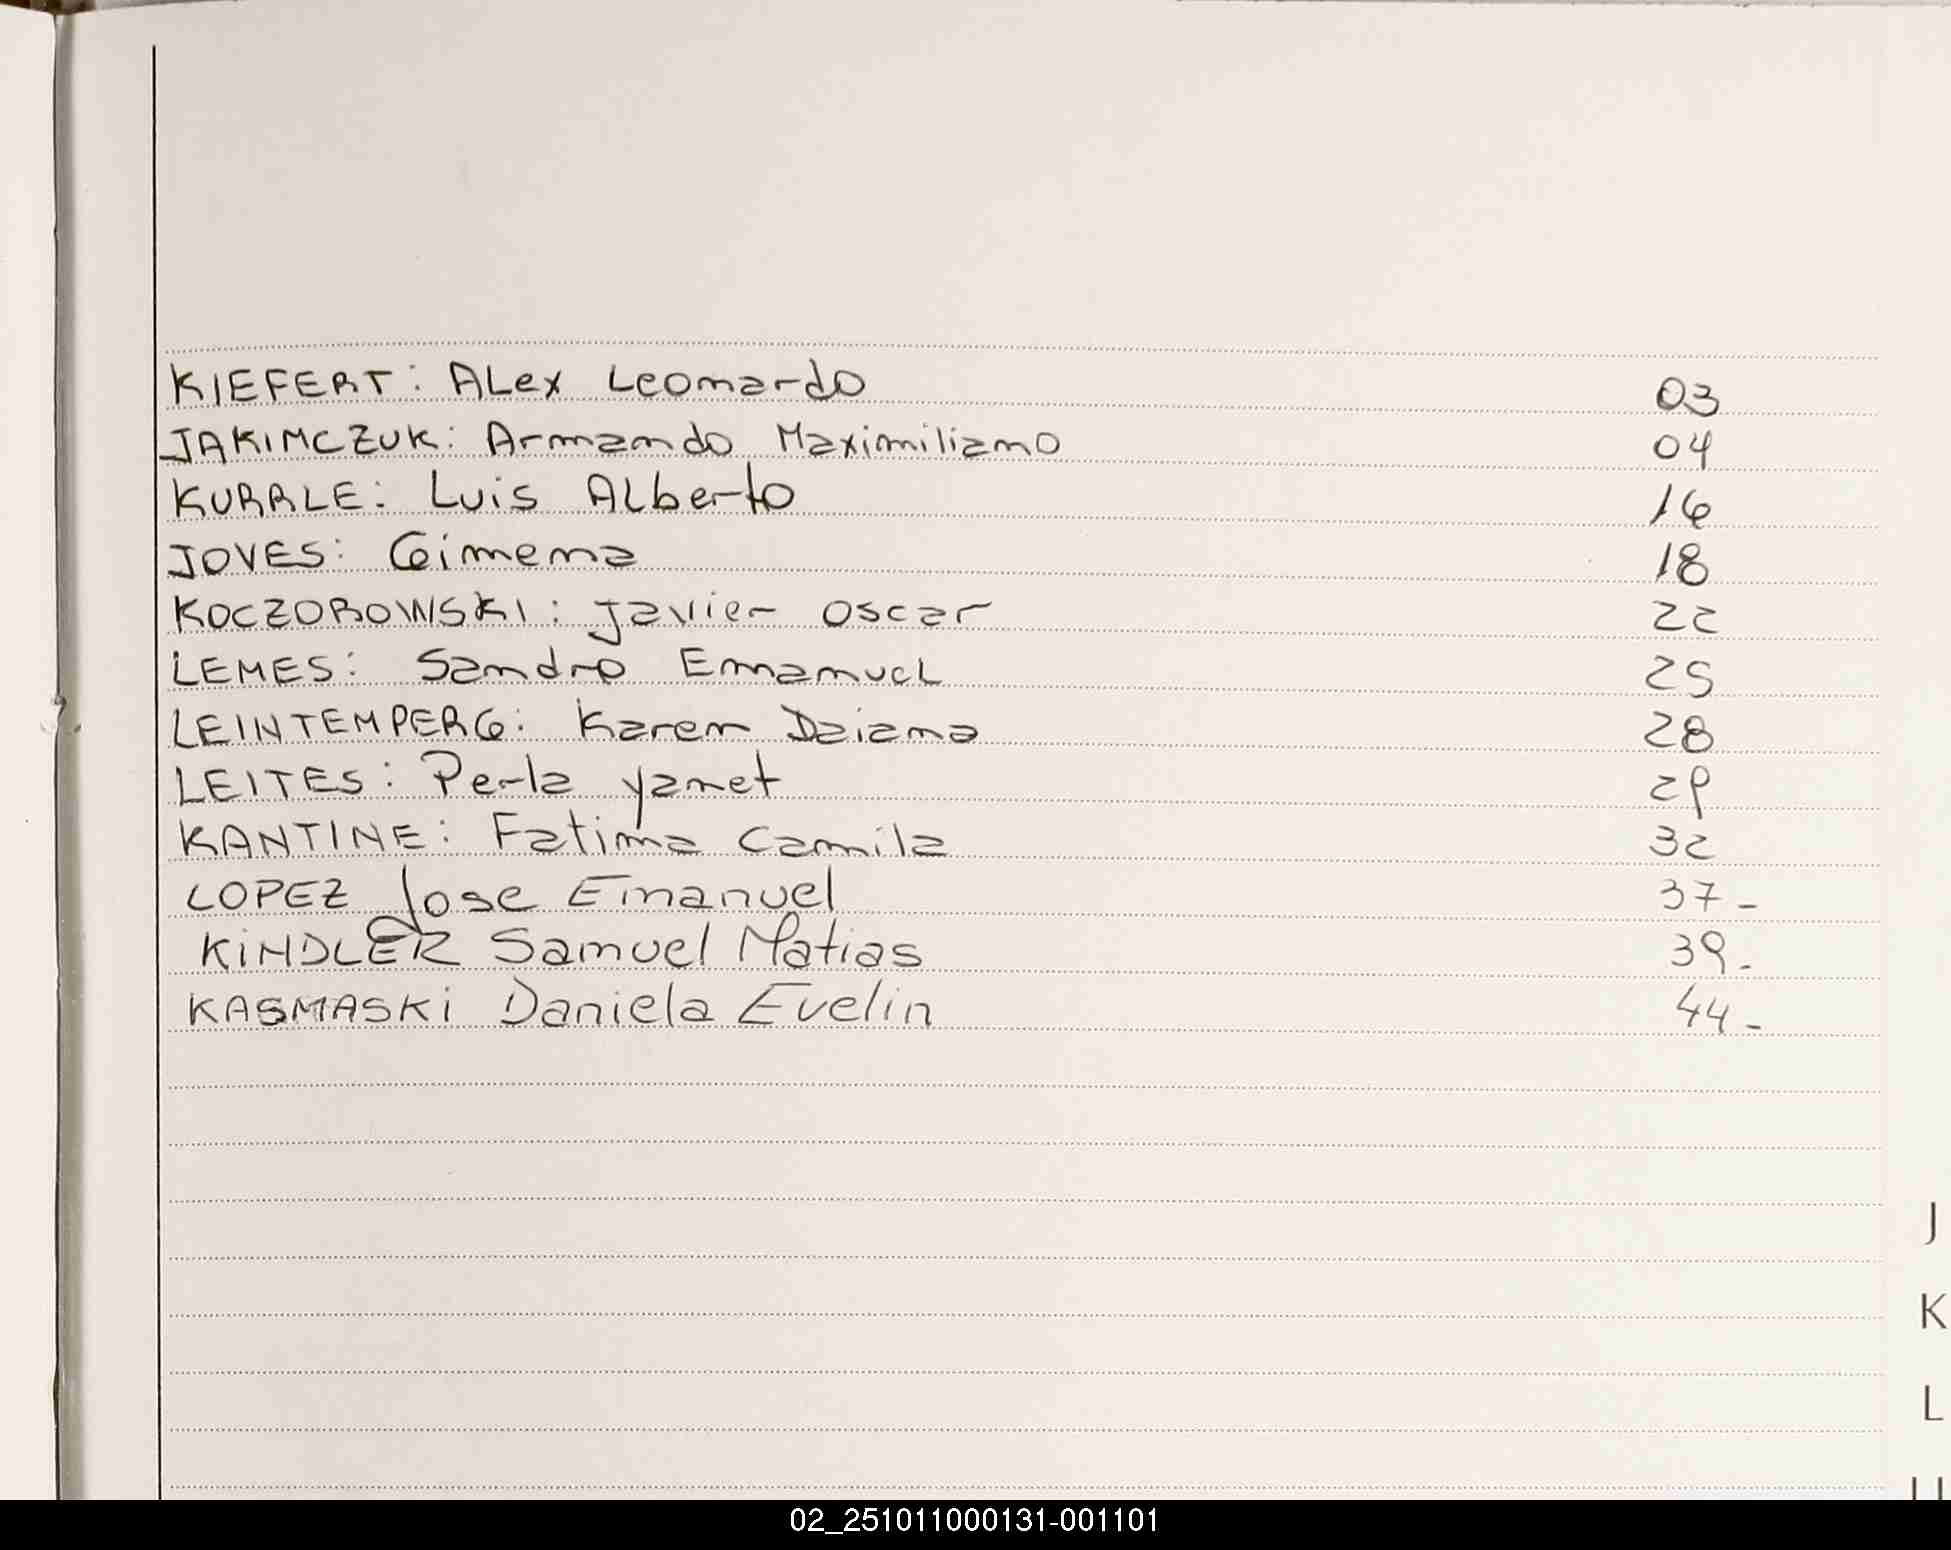 KIEFERT: ALex Leonardo 03
JAKIMCZUK: Armando Maximiliano 04
KURRLE: Luis ALberto 16
JOVES: Gimena 18
KOCZOROWSKI: Javier Oscar 22
LEMES: Sandro Emanuel 25
LEINTEMPERG: Karen Daiana 28
LEITES: Perla yanet 29
KANTINE: Fatima Camila 32
LOPEZ Jose Emanuel 37-
KiNDLER Samuel Matias 39-
KASMASKi Daniela Evelin 44-
J
K
L
02_251011000131-001101